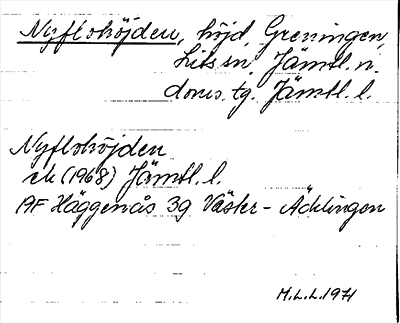 Nyflohöjden, höjd, Greningen,
Lits sn. Jämtl. n.
doms. tg. Jämtl. l.
Nyflohöjden
ek (1968) Jämtl. l.
19F Häggenås 3g Väster-Äcklingen
M.L.L. 1971